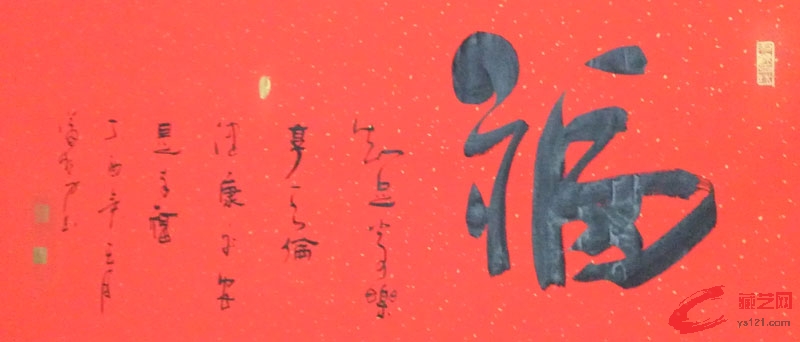 福
知足常樂
享天倫
健康平安
是幸福
藏艺网
ys121.com